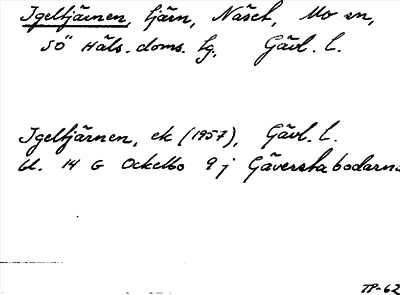 Igeltjärnen, tjärn, Näset, Mo sn,
SÖ Häls. doms. lg, Gävl. l.
Igeltjärnen, ek (1957), Gävl. l.
bl. 14 G Ockelbo 9 j Gäversta bodarna
TP-62